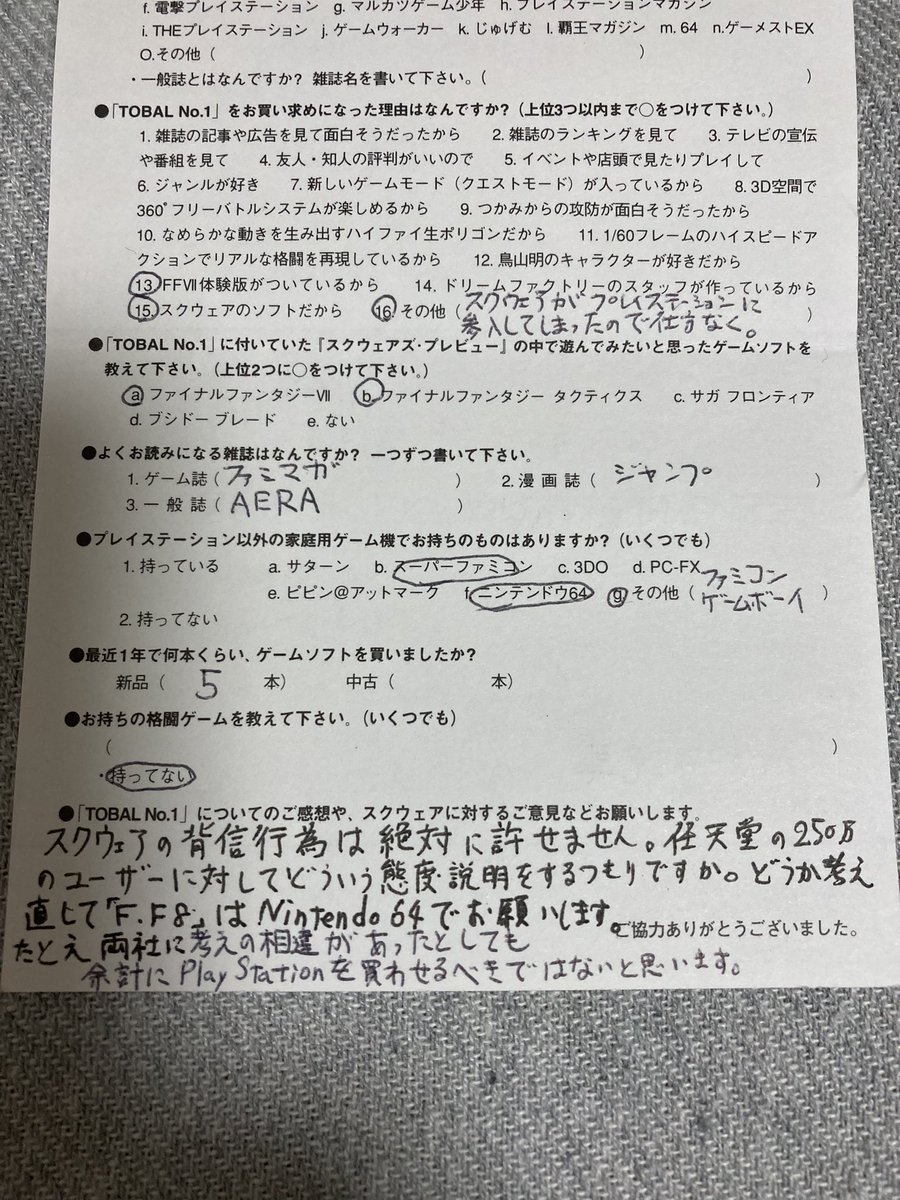 f. 電撃プレイステーション g. マルカツゲーム少年 h. プレイステーションマガジン
i. THEプレイステーション j. ゲームウォーカー k. じゅげむ l. 覇王マガジン m. 64 n.ゲーメストEX
O.その他( )
・一般誌とはなんですか? 雑誌名を書いて下さい。( )
●「TOBAL No.1」をお買い求めになった理由はなんですか?(上位3つ以内まで○をつけて下さい。)
1. 雑誌の記事や広告を見て面白そうだったから 2. 雑誌のランキングを見て 3. テレビの宣伝
や番組を見て 4. 友人・知人の評判がいいので 5. イベントや店頭で見たりプレイして
6. ジャンルが好き 7. 新しいゲームモード(クエストモード)が入っているから 8. 3D空間で
360°フリーバトルシステムが楽しめるから 9. つかみからの攻防が面白そうだったから
10. なめらかな動きを生み出すハイファイ生ポリゴンだから 11. 1/60フレームのハイスピードア
クションでリアルな格闘を再現しているから 12. 鳥山明のキャラクターが好きだから
13. FFVII体験版がついているから 14. ドリームファクトリーのスタッフが作っているから
15. スクウェアのソフトだから 16. その他(スクウェアがプレイステーションに
参入してしまったので仕方なく。)
●「TOBAL No.1」に付いていた『スクウェアズ・プレビュー』の中で遊んでみたいと思ったゲームソフトを
教えて下さい。(上位2つに○をつけて下さい。)
a ファイナルファンタジーVII b. ファイナルファンタジー タクティクス c. サガ フロンティア
d. ブシドー ブレード e. ない
●よくお読みになる雑誌はなんですか? 一つずつ書いて下さい。
1. ゲーム誌(ファミマガ ) 2. 漫画誌(ジャンプ )
3. 一般誌(AERA )
●プレイステーション以外の家庭用ゲーム機でお持ちのものはありますか?(いくつでも)
1. 持っている a. サターン b. スーパーファミコン c. 3DO d. PC-FX
e. ピピン@アットマーク f. ニンテンドウ64 g その他(ファミコン
ゲームボーイ)
2. 持ってない
●最近1年で何本くらい、ゲームソフトを買いましたか?
新品( 5 本) 中古( 本)
●お持ちの格闘ゲームを教えて下さい。(いくつでも)
( )
・持ってない
●「TOBAL No.1」についてのご感想や、スクウェアに対するご意見などお願いします。
スクウェアの背信行為は絶対に許せません。任天堂の250万
のユーザーに対してどういう態度説明をするつもりですか。どうか考え
直して「F.F8」はNintendo64でお願いします。
ご協力ありがとうございました。
たとえ両社に考えの相違があったとしても
余計にPlayStationを買わせるべきではないと思います。